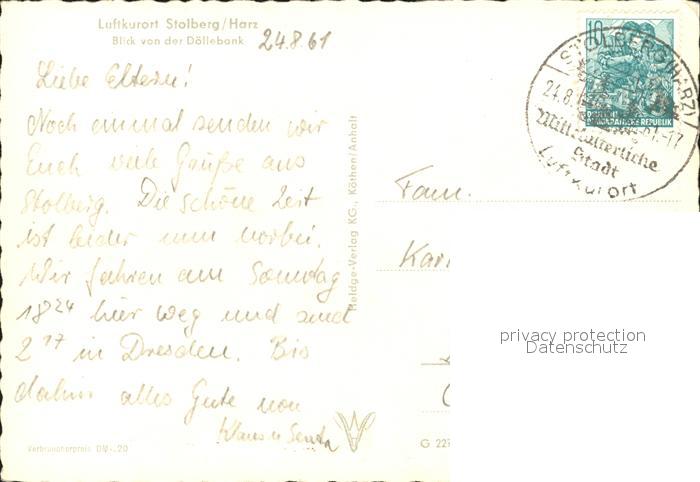 Luftkurort Stolberg/Harz
Blick von der Döllebank
24.8.61
Liebe Eltern!
Noch einmal senden wir
Euch viele Grüße aus
Stolberg. Die schöne Zeit
ist leider nun vorbei.
Wir fahren am Sonntag
18²⁴ hier weg und sind
2¹⁷ in Dresden. Bis
dahin alles Gute von
Klaus u Senta
Verbraucherpreis DM -.20
Heldge-Verlag KG., Köthen/Anhalt
10
DEUTSCHE
DEMOKRATISCHE REPUBLIK
STOLBERG (HARZ)
24.8. 61.-17
Mittelalterliche
Stadt
Luftkurort
Fam.
Kar
G 227
privacy protection
Datenschutz